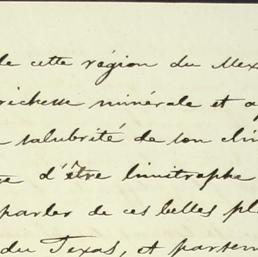 de cette région du Mex
richesse minérale et a
salubrité de son cli
d'être limitrophe
parler de ces belles pl
du Texas, et parsem